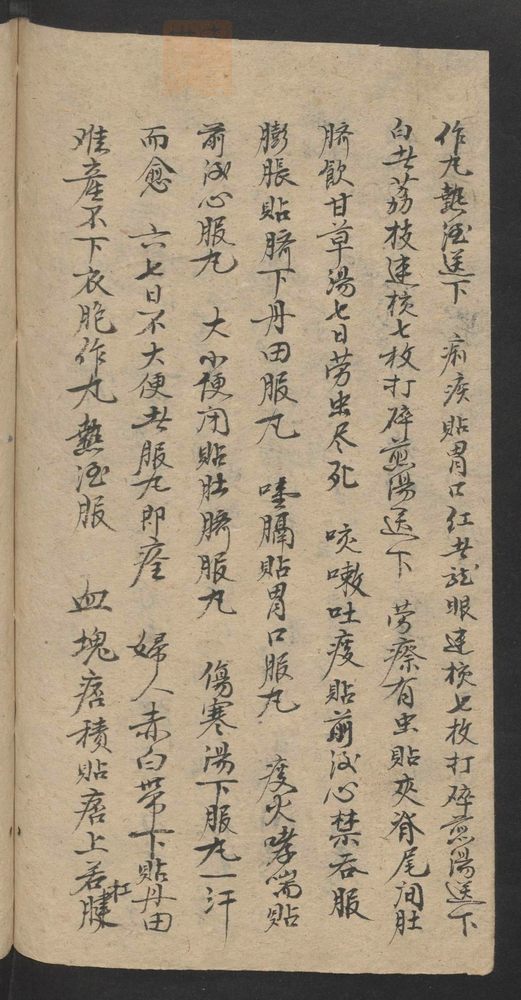 作丸熱酒送下 痢疾貼胃口紅者龍眼連核七枚打碎煎湯送下
白者荔枝連核七枚打碎煎湯送下 劳瘵有虫貼夾脊尾闾肚
臍飲甘草湯七日劳虫尽死 咳嗽吐痰貼前後心禁吞服
膨脹貼臍下丹田服丸 噎膈貼胃口服丸 痰火哮喘貼
前後心服丸 大小便闭貼肚臍服丸 傷寒湯下服丸一汗
而愈 六七日不大便者服丸即痊 婦人赤白带下貼丹田
难產不下衣胞作丸熱酒服 血塊痞積貼痞上若腱杠